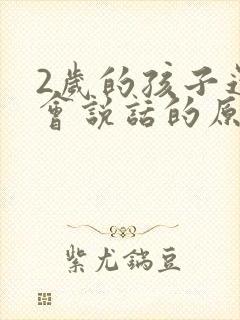 2歲的孩子
會說話的原
紫尤鍴豆